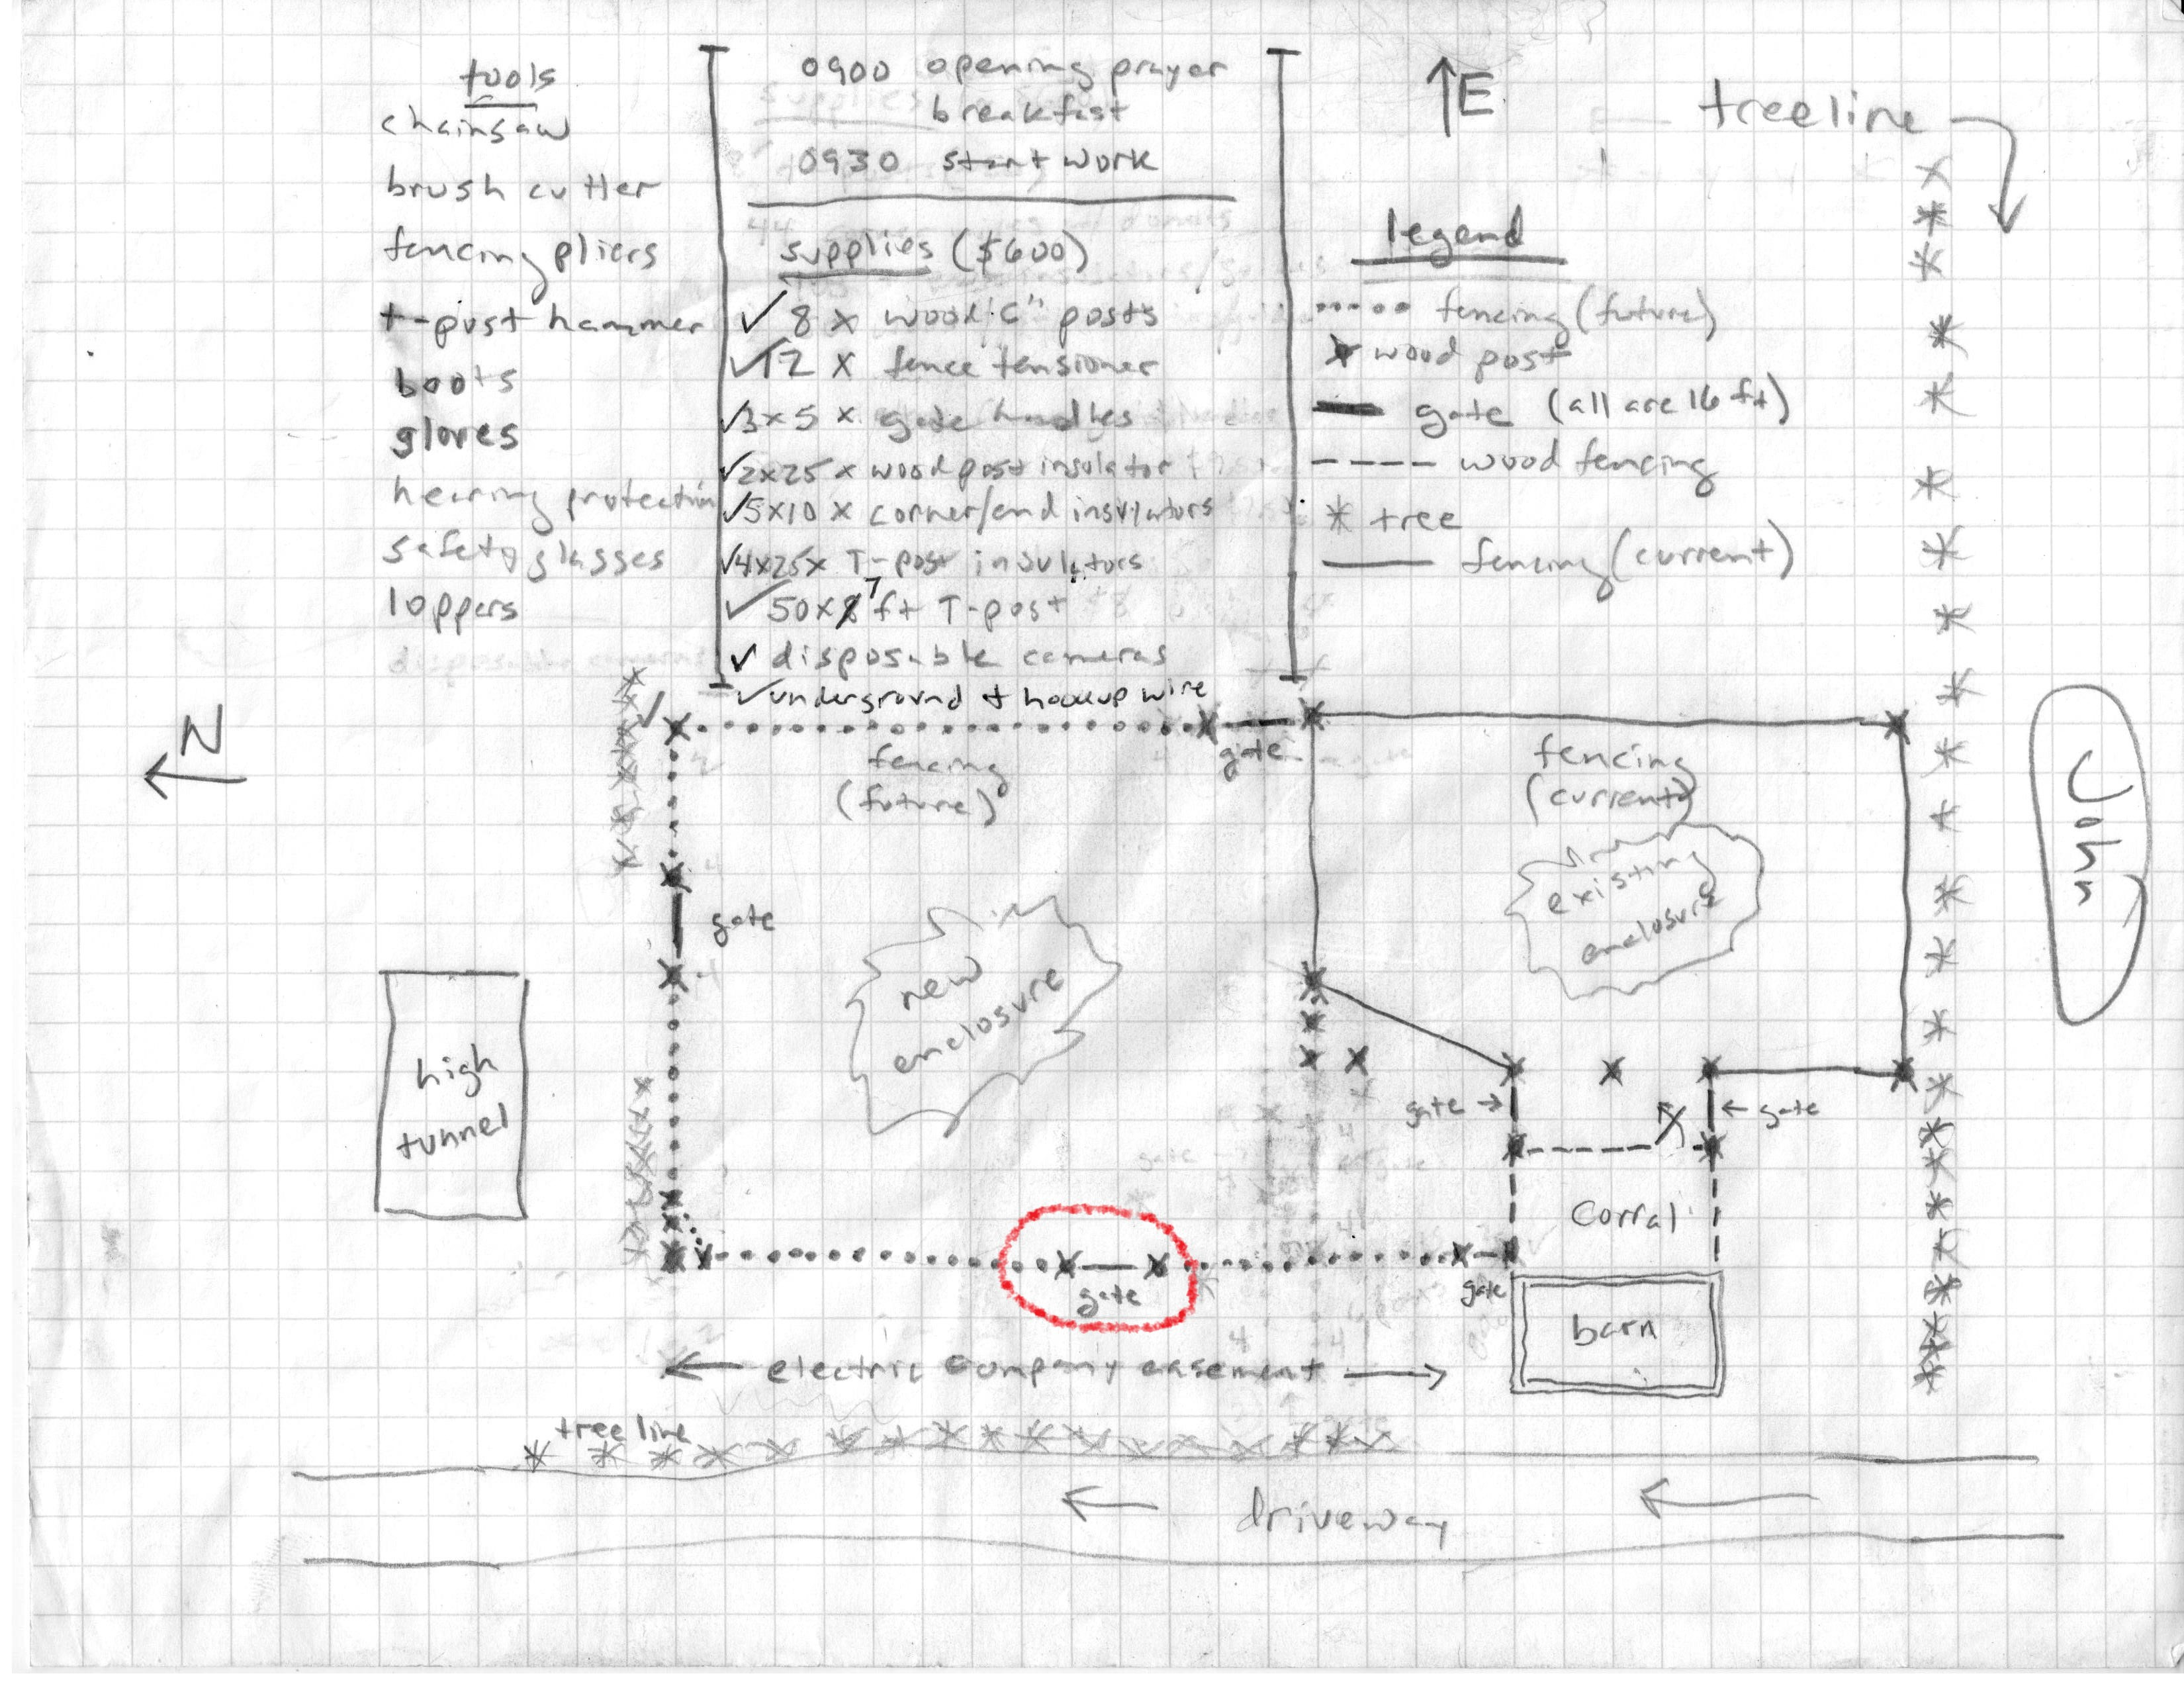 tools
chainsaw
brush cutter
fencing pliers
t-post hammer
boots
gloves
hearing protection
safety glasses
loppers
0900 opening prayer
breakfast
0930 start work
supplies ($600)
✓ 8 x wood 6" posts
✓ 12 x fence tensioner
✓ 3x5 x gate handles
✓ 2x25 x wood post insulator
✓ 5x10 x corner/end insulators
✓ 4x25x T-post insulators
✓ 50x 7 ft T-post
✓ disposable cameras
✓ underground + hookup wire
↑E
treeline
legend
fencing (future)
wood post
gate (all are 16 ft)
wood fencing
tree
fencing (current)
N
John
gate
fencing
(future)
fencing
(current)
existing
enclosure
gate
new
enclosure
high
tunnel
gate →
← gate
corral
gate
gate
barn
← electric company easement →
treeline
← driveway ←